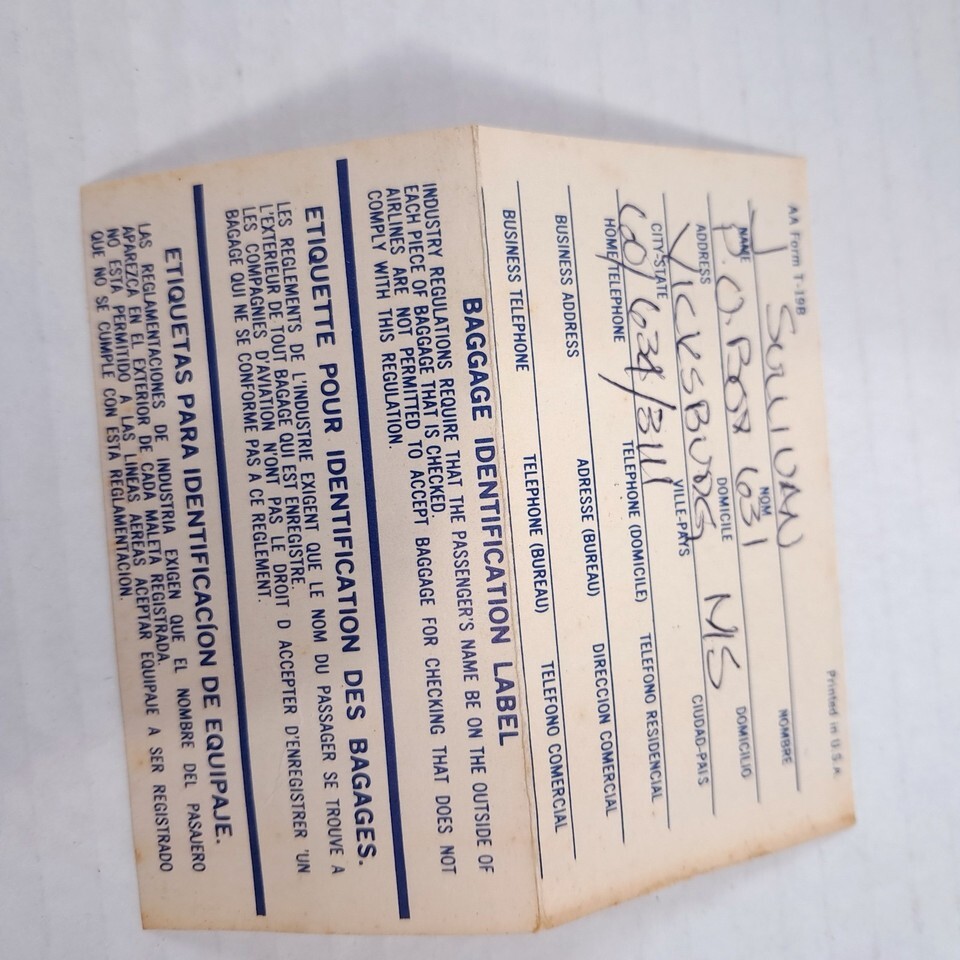 AA Form T-19B Printed in U.S.A.
J SULLIVAN
NAME NOM NOMBRE
P.O. BOX 631
ADDRESS DOMICILE DOMICILIO
VICKSBURG MS
CITY-STATE VILLE-PAYS CIUDAD-PAIS
601/634/3111
HOME/TELEPHONE TELEPHONE (DOMICILE) TELEFONO RESIDENCIAL
BUSINESS ADDRESS ADRESSE (BUREAU) DIRECCION COMERCIAL
BUSINESS TELEPHONE TELEPHONE (BUREAU) TELEFONO COMERCIAL
BAGGAGE IDENTIFICATION LABEL
INDUSTRY REGULATIONS REQUIRE THAT THE PASSENGER'S NAME BE ON THE OUTSIDE OF
EACH PIECE OF BAGGAGE THAT IS CHECKED.
AIRLINES ARE NOT PERMITTED TO ACCEPT BAGGAGE FOR CHECKING THAT DOES NOT
COMPLY WITH THIS REGULATION.
ETIQUETTE POUR IDENTIFICATION DES BAGAGES.
LES REGLEMENTS DE L'INDUSTRIE EXIGENT QUE LE NOM DU PASSAGER SE TROUVE A
L'EXTERIEUR DE TOUT BAGAGE QUI EST ENREGISTRE.
LES COMPAGNIES D'AVIATION N'ONT PAS LE DROIT D ACCEPTER D'ENREGISTRER 'UN
BAGAGE QUI NE SE CONFORME PAS A CE REGLEMENT.
ETIQUETAS PARA IDENTIFICACÍON DE EQUIPAJE.
LAS REGLAMENTACIONES DE INDUSTRIA EXIGEN QUE EL NOMBRE DEL PASAJERO
APAREZCA EN EL EXTERIOR DE CADA MALETA REGISTRADA.
NO ESTA PERMITIDO A LAS LINEAS AEREAS ACEPTAR EQUIPAJE A SER REGISTRADO
QUE NO SE CUMPLE CON ESTA REGLAMENTACION.